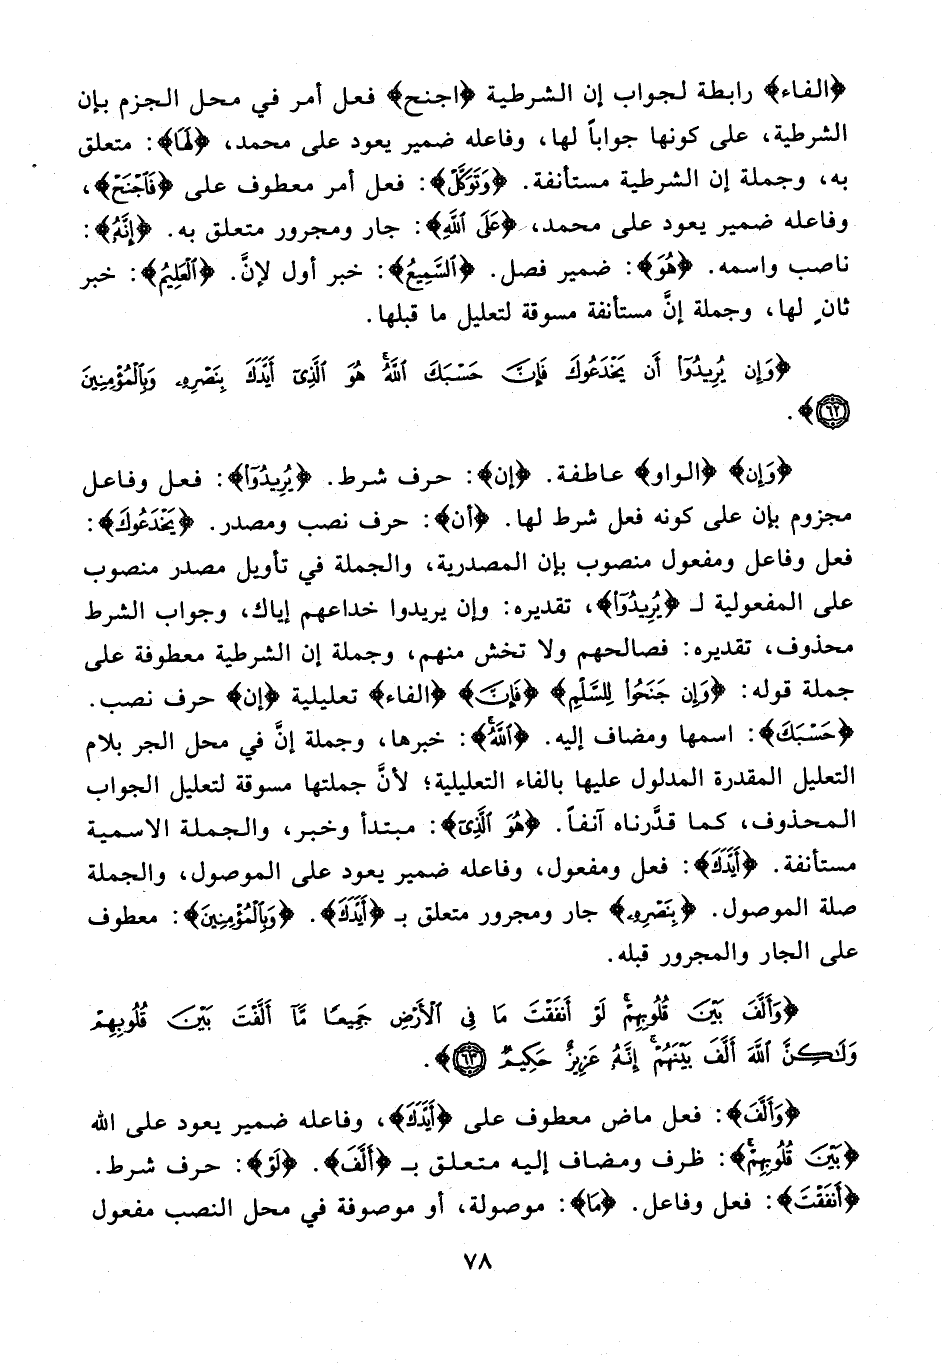 ﴿الفاء﴾ رابطة لجواب إن الشرطية ﴿اجنح﴾ فعل أمر في محل الجزم بإن
الشرطية، على كونها جواباً لها، وفاعله ضمير يعود على محمد، ﴿لَهَا﴾: متعلق
به، وجملة إن الشرطية مستأنفة. ﴿وَتَوَكَّلْ﴾: فعل أمر معطوف على ﴿فَاجْنَحْ﴾،
وفاعله ضمير يعود على محمد، ﴿عَلَى اللَّهِ﴾: جار ومجرور متعلق به. ﴿إِنَّهُ﴾:
ناصب واسمه. ﴿هُوَ﴾: ضمير فصل. ﴿السَّمِيعُ﴾: خبر أول لإنَّ. ﴿الْعَلِيمُ﴾: خبر
ثانٍ لها، وجملة إنَّ مستأنفة مسوقة لتعليل ما قبلها.
﴿وَإِن يُرِيدُوٓا۟ أَن يَخْدَعُوكَ فَإِنَّ حَسْبَكَ اللَّهُ ۚ هُوَ الَّذِىٓ أَيَّدَكَ بِنَصْرِهِۦ وَبِالْمُؤْمِنِينَ
٦٢﴾.
﴿وَإِن﴾ ﴿الواو﴾ عاطفة. ﴿إن﴾: حرف شرط. ﴿يُرِيدُوٓا۟﴾: فعل وفاعل
مجزوم بإن على كونه فعل شرط لها. ﴿أن﴾: حرف نصب ومصدر. ﴿يَخْدَعُوكَ﴾:
فعل وفاعل ومفعول منصوب بإن المصدرية، والجملة في تأويل مصدر منصوب
على المفعولية لـ ﴿يُرِيدُوٓا۟﴾، تقديره: وإن يريدوا خداعهم إياك، وجواب الشرط
محذوف، تقديره: فصالحهم ولا تخش منهم، وجملة إن الشرطية معطوفة على
جملة قوله: ﴿وَإِن جَنَحُوا۟ لِلسَّلْمِ﴾ ﴿فَإِنَّ﴾ ﴿الفاء﴾ تعليلية ﴿إن﴾ حرف نصب.
﴿حَسْبَكَ﴾: اسمها ومضاف إليه. ﴿اللَّهُ ۚ﴾: خبرها، وجملة إنَّ في محل الجر بلام
التعليل المقدرة المدلول عليها بالفاء التعليلية؛ لأنَّ جملتها مسوقة لتعليل الجواب
المحذوف، كما قدَّرناه آنفاً. ﴿هُوَ الَّذِىٓ﴾: مبتدأ وخبر، والجملة الاسمية
مستأنفة. ﴿أَيَّدَكَ﴾: فعل ومفعول، وفاعله ضمير يعود على الموصول، والجملة
صلة الموصول. ﴿بِنَصْرِهِۦ﴾ جار ومجرور متعلق بـ ﴿أَيَّدَكَ﴾. ﴿وَبِالْمُؤْمِنِينَ﴾: معطوف
على الجار والمجرور قبله.
﴿وَأَلَّفَ بَيْنَ قُلُوبِهِمْ ۚ لَوْ أَنفَقْتَ مَا فِى الْأَرْضِ جَمِيعًا مَّآ أَلَّفْتَ بَيْنَ قُلُوبِهِمْ
وَلَٰكِنَّ اللَّهَ أَلَّفَ بَيْنَهُمْ ۚ إِنَّهُۥ عَزِيزٌ حَكِيمٌ ٦٣﴾.
﴿وَأَلَّفَ﴾: فعل ماض معطوف على ﴿أَيَّدَكَ﴾، وفاعله ضمير يعود على الله
﴿بَيْنَ قُلُوبِهِمْ ۚ﴾: ظرف ومضاف إليه متعلق بـ ﴿أَلَّفَ﴾. ﴿لَوْ﴾: حرف شرط.
﴿أَنفَقْتَ﴾: فعل وفاعل. ﴿مَا﴾: موصولة، أو موصوفة في محل النصب مفعول
٧٨